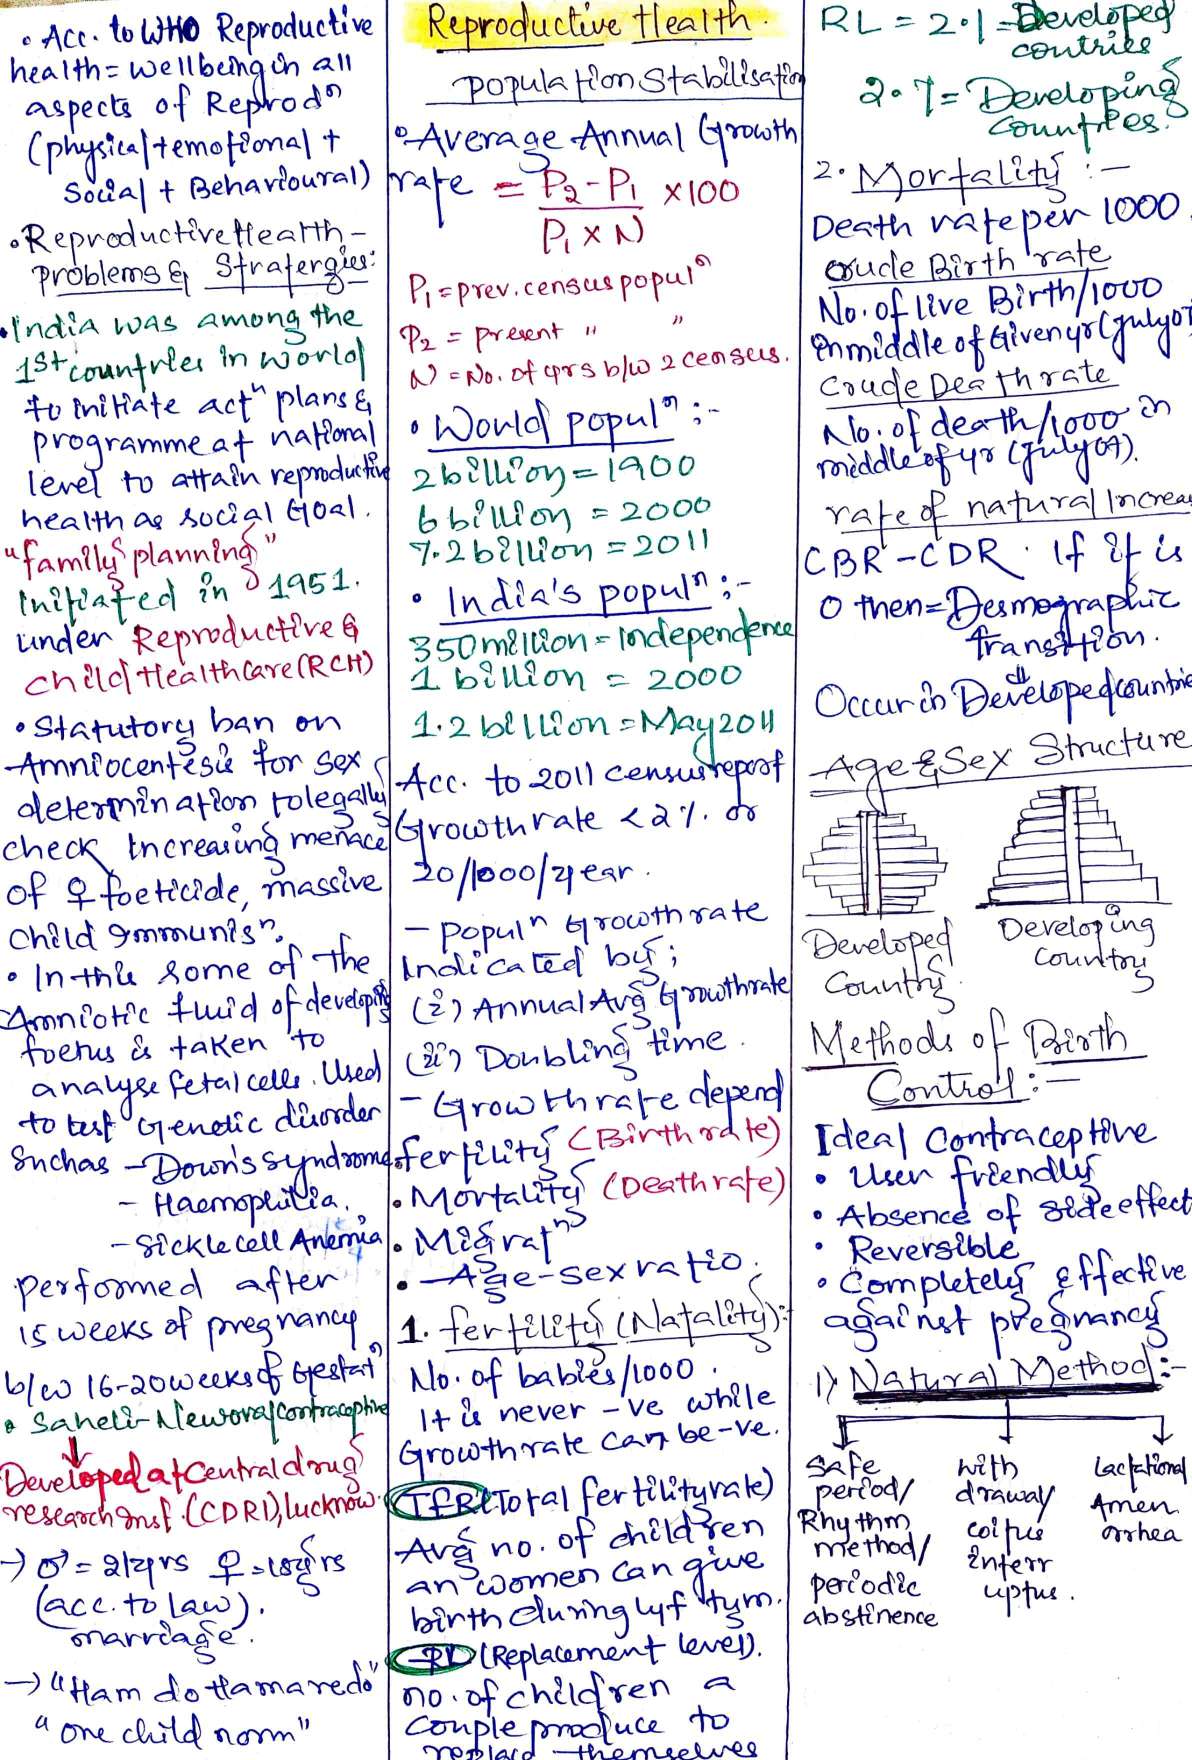 Reproductive Health.
• Acc. to WHO Reproductive
health = wellbeing in all
aspects of Reprodⁿ
(physical + emotional +
Social + Behavioural)
• Reproductive Health -
problems & Stratergies:
• India was among the
1st countries in world
to initiate actⁿ plans &
programme at national
level to attain reproductive
health as social Goal.
"family planning"
initiated in 1951.
under Reproductive &
child Health Care (RCH)
• Statutory ban on
Amniocentesis for sex
determination to legally
check increasing menace
of ♀ foeticide, massive
child Immunisⁿ.
• In this some of the
Amniotic fluid of developing
foetus is taken to
analyse fetal cells. Used
to test Genetic disorder
Such as - Down's syndrome
- Haemophilia.
- Sickle cell Anemia
performed after
15 weeks of pregnancy
b/w 16-20 weeks of Gestatⁿ
• Saheli - New oral contraceptive
↓
Developed at Central drug
research Inst. (CDRI), lucknow.
→ ♂ = 21 yrs ♀ = 18 yrs
(acc. to law).
marriage.
→ "Ham do Hamare do"
"one child norm"
population Stabilisation
• Average Annual Growth
rate = P₂ - P₁ / P₁ × N × 100
P₁ = prev. census populⁿ
P₂ = present " "
N = No. of yrs b/w 2 census.
• World populⁿ :-
2 billion = 1900
6 billion = 2000
7.2 billion = 2011
• India's populⁿ :-
350 million = Independence
1 billion = 2000
1.2 billion = May 2011
Acc. to 2011 census report
Growth rate < 2%. or
20/1000/year.
- populⁿ Growth rate
Indicated by;
(i) Annual Avg Growth rate
(ii) Doubling time.
- Growth rate depend
• fertility (Birth rate)
• Mortality (Death rate)
• Migratⁿ
• Age-sex ratio.
1. fertility (Natality):-
No. of babies/1000.
It is never -ve while
Growth rate can be -ve.
TFR (Total fertility rate)
Avg no. of children
an women can give
birth during lyf tym.
RL (Replacement level).
no. of children a
couple produce to
replace themselves
RL = 2.1 = Developed
contries
2.7 = Developing
countries.
2. Mortality :-
Death rate per 1000.
crude Birth rate
No. of live Birth/1000
in middle of Given yr (July 01
Crude Death rate
No. of death/1000 in
middle of yr (July 01).
rate of natural Increas
CBR - CDR. If it is
0 then = Desmographic
transition.
Occur in Developed countrie
Age & Sex Structure
Developed
Country.
Developing
Country
Methods of Birth
Control :-
Ideal Contraceptive
• User friendly
• Absence of side effect
• Reversible
• Completely effective
against pregnancy
1) Natural Method :-
Safe
period/
Rhythm
method/
periodic
abstinence
with
drawal/
coitus
interr
uptus.
Lactational
Amen
orrhea